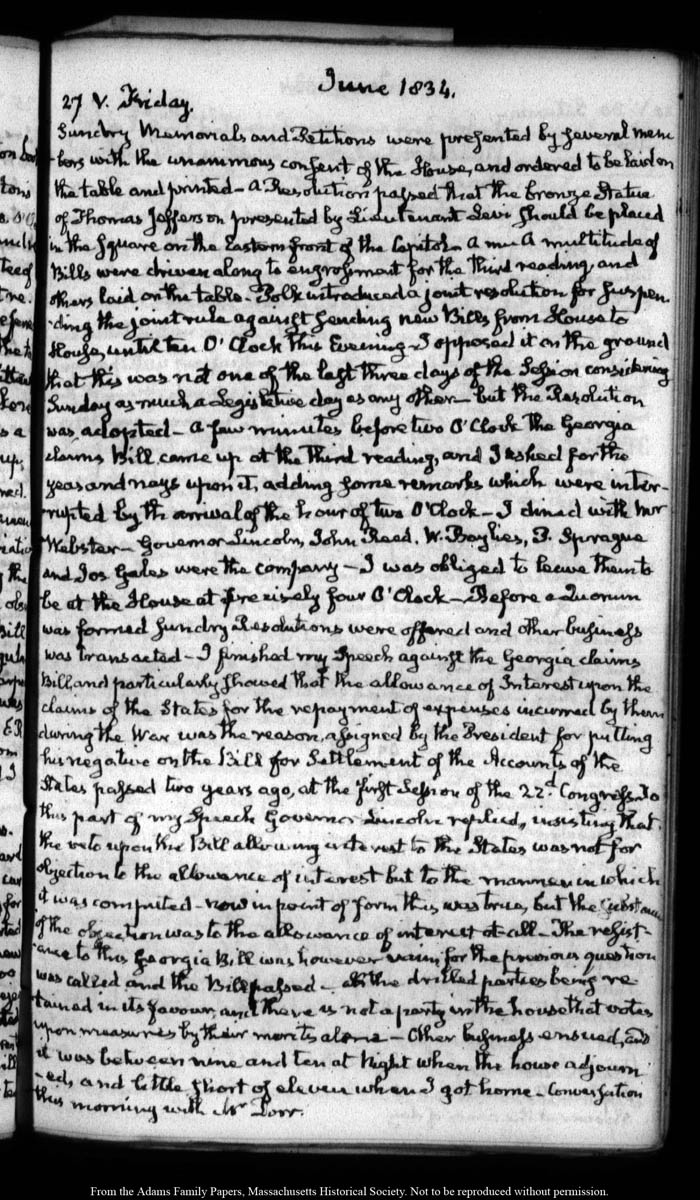 June 1834.
27 V. Friday.
Sundry Memorials and Petitions were presented by several mem
-bers with the unanimous consent of the House, and ordered to be laid on
the table and printed – A Resolution passed that the bronze Statue
of Thomas Jefferson presented by Lieutenant Levi should be placed
in the Square on the Eastern front of the Capitol – A multitude of
Bills were driven along to engrossment for the third reading, and
others laid on the table – Polk introduced a joint resolution for suspen
-ding the joint rule against sending new Bills from House to
House, until ten O'Clock this Evening – I opposed it on the ground
that this was not one of the last three days of the Session considering
Sunday as much a Legislative day as any other – but the Resolution
was adopted – A few minutes before two O'Clock the Georgia
claims Bill came up at the third reading, and I asked for the
yeas and nays upon it, adding some remarks which were inter-
rupted by the arrival of the hour of two O'Clock – I dined with Mr
Webster – Governor Lincoln, John Reed, W. Baylies, P. Sprague
and Jos Gales were the company – I was obliged to leave them to
be at the House at precisely four O'Clock – Before a Quorum
was formed sundry Resolutions were offered and other business
was transacted – I finished my Speech against the Georgia claims
Bill, and particularly showed that the allowance of Interest upon the
claims of the States for the repayment of expenses incurred by them
during the War was the reason, assigned by the President for putting
his negative on the Bill for Settlement of the Accounts of the
States passed two years ago, at the first Session of the 22d. Congress. To
this part of my Speech Governor Lincoln replied, insisting that
the veto upon the Bill allowing interest to the States was not for
objection to the allowance of interest but to the manner in which
it was computed – now in point of form this was true, but the substance
of the objection was to the allowance of interest at all – The resist-
ance to this Georgia Bill was however vain for the previous question
was called and the Bill passed – all the drilled parties being re
tained in its favour, and there is not a party in the house that votes
upon measures by their merits alone – Other business ensued, and
it was between nine and ten at Night when the house adjourn
-ed, and little short of eleven when I got home – Conversation
this morning with Mr Dorr.
From the Adams Family Papers, Massachusetts Historical Society. Not to be reproduced without permission.